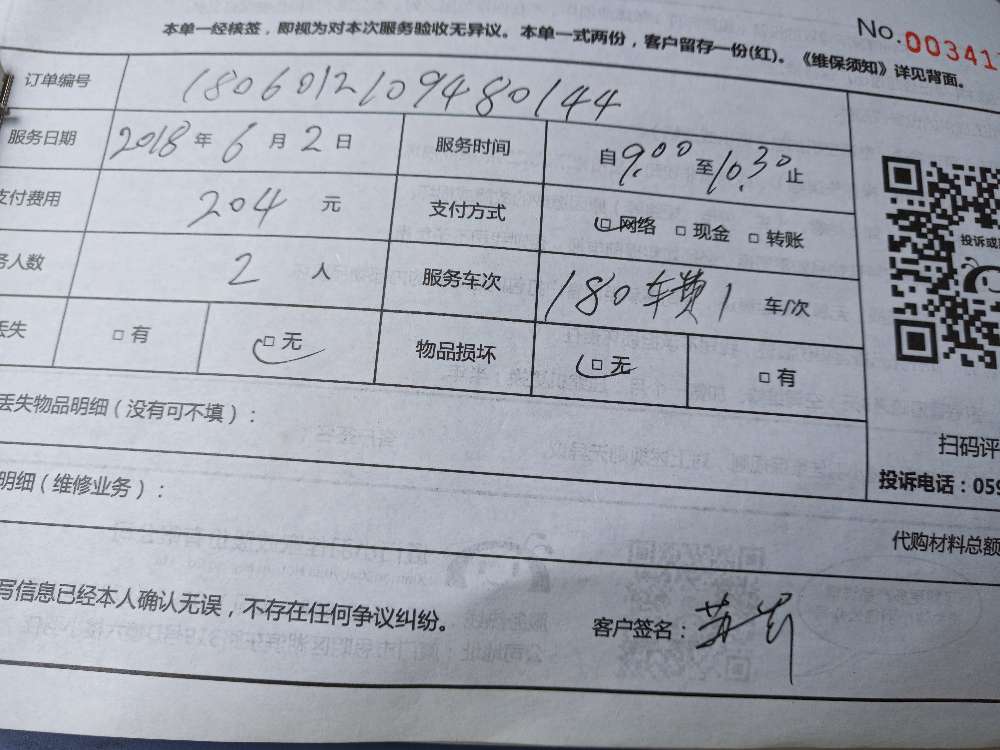 No. 00341
本单一经核签，即视为对本次服务验收无异议。本单一式两份，客户留存一份(红)。《维保须知》详见背面。
订单编号 1806012109480144
服务日期 2018 年 6 月 2 日 服务时间 自 9.00 至 10.30 止
支付费用 204 元 支付方式 □ 网络 □ 现金 □ 转账
务人数 2 人 服务车次 180车费1 车/次
丢失 □ 有 □ 无 物品损坏 □ 无 □ 有
丢失物品明细（没有可不填）：
明细（维修业务）：
投诉或
扫码评
投诉电话：059
代购材料总额
写信息已经本人确认无误，不存在任何争议纠纷。
客户签名：